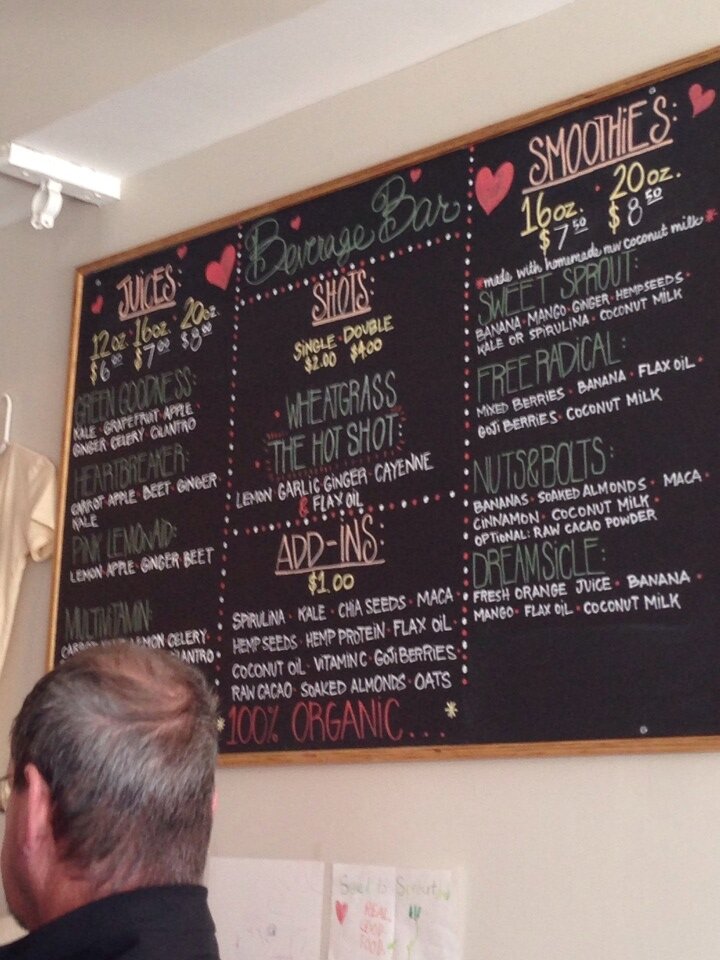 Beverage Bar
JUICES:
12oz. 16oz. 20oz.
$6.00 $7.00 $8.00
GREEN GOODNESS:
KALE · GRAPEFRUIT · APPLE
GINGER CELERY CILANTRO
HEARTBREAKER:
CARROT · APPLE · BEET · GINGER ·
KALE
PINK LEMONAID:
LEMON · APPLE · GINGER BEET
MULTIVITAMIN:
LEMON CELERY ·
SHOTS:
SINGLE · DOUBLE
$2.00 $4.00
WHEATGRASS
THE HOT SHOT:
LEMON GARLIC GINGER · CAYENNE
& FLAX OIL
ADD-INS:
$1.00
SPIRULINA · KALE · CHIA SEEDS · MACA ·
HEMP SEEDS · HEMP PROTEIN · FLAX OIL ·
COCONUT OIL · VITAMIN C · GOJI BERRIES ·
RAW CACAO · SOAKED ALMONDS · OATS
*100% ORGANIC...*
SMOOTHIE'S:
16oz. · 20oz.
$7.50 $8.50
*made with homemade raw coconut milk*
SWEET SPROUT:
BANANA · MANGO · GINGER · HEMPSEEDS ·
KALE OR SPIRULINA · COCONUT MILK
FREE RADICAL:
MIXED BERRIES · BANANA · FLAX OIL ·
GOJI BERRIES · COCONUT MILK
NUTS&BOLTS:
BANANAS · SOAKED ALMONDS · MACA ·
CINNAMON · COCONUT MILK ·
OPTIONAL: RAW CACAO POWDER
DREAMSICLE:
FRESH ORANGE JUICE · BANANA ·
MANGO · FLAX OIL · COCONUT MILK
REAL
FOOD